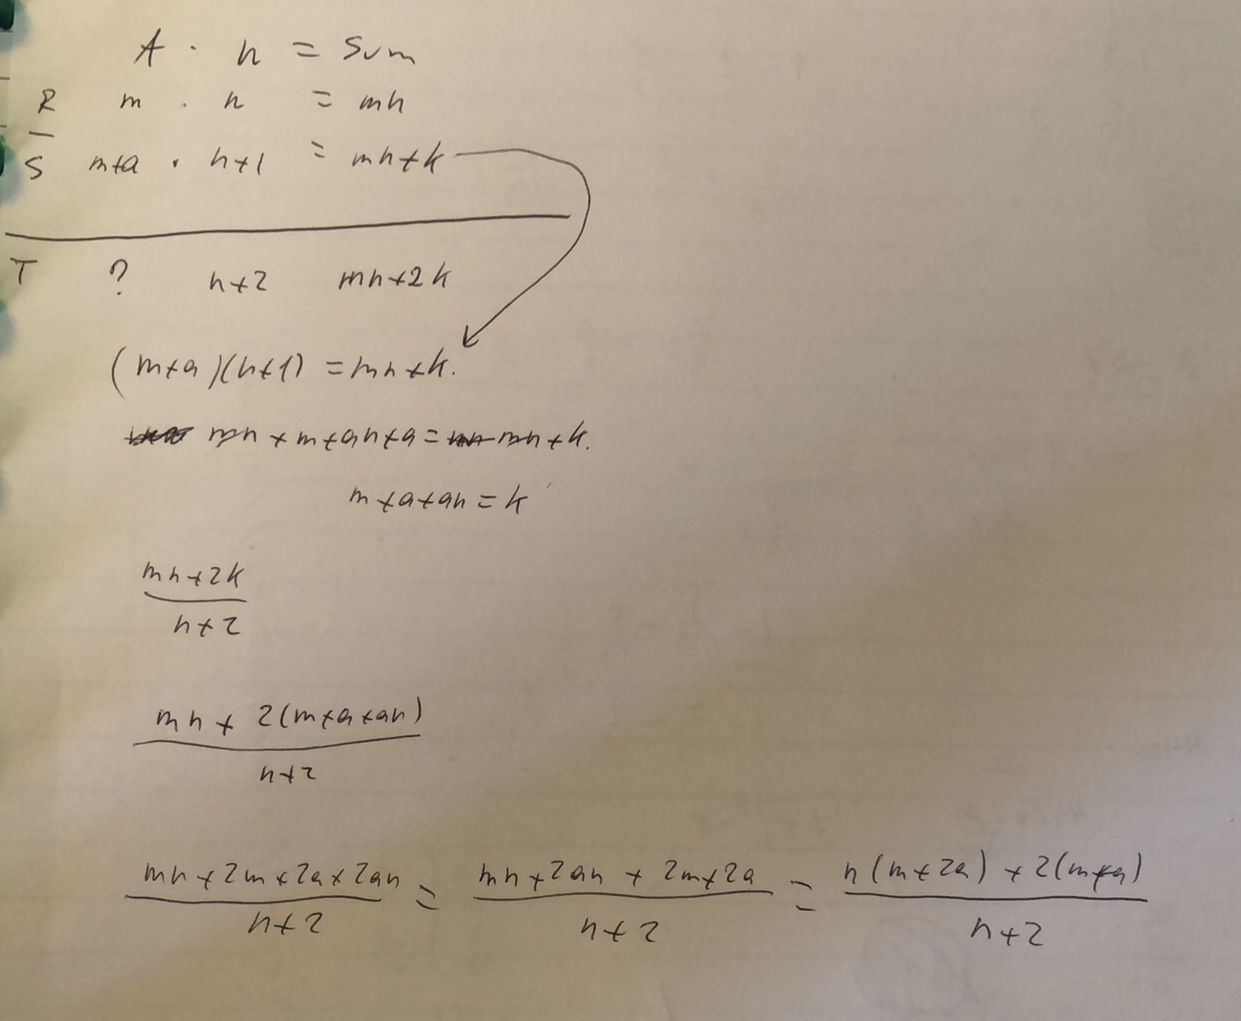 A · n = Sum
R m · n = mn
S m+a · n+1 = mn+k
T ? n+2 mn+2k
(m+a)(n+1) = mn+k.
mn+m+an+a = mn+k.
m+a+an = k
mn+2k
n+2
mn + 2(m+a+an)
n+2
mn+2m+2a+2an = mn+2an + 2m+2a = n(m+2a) + 2(m+a)
n+2 n+2 n+2